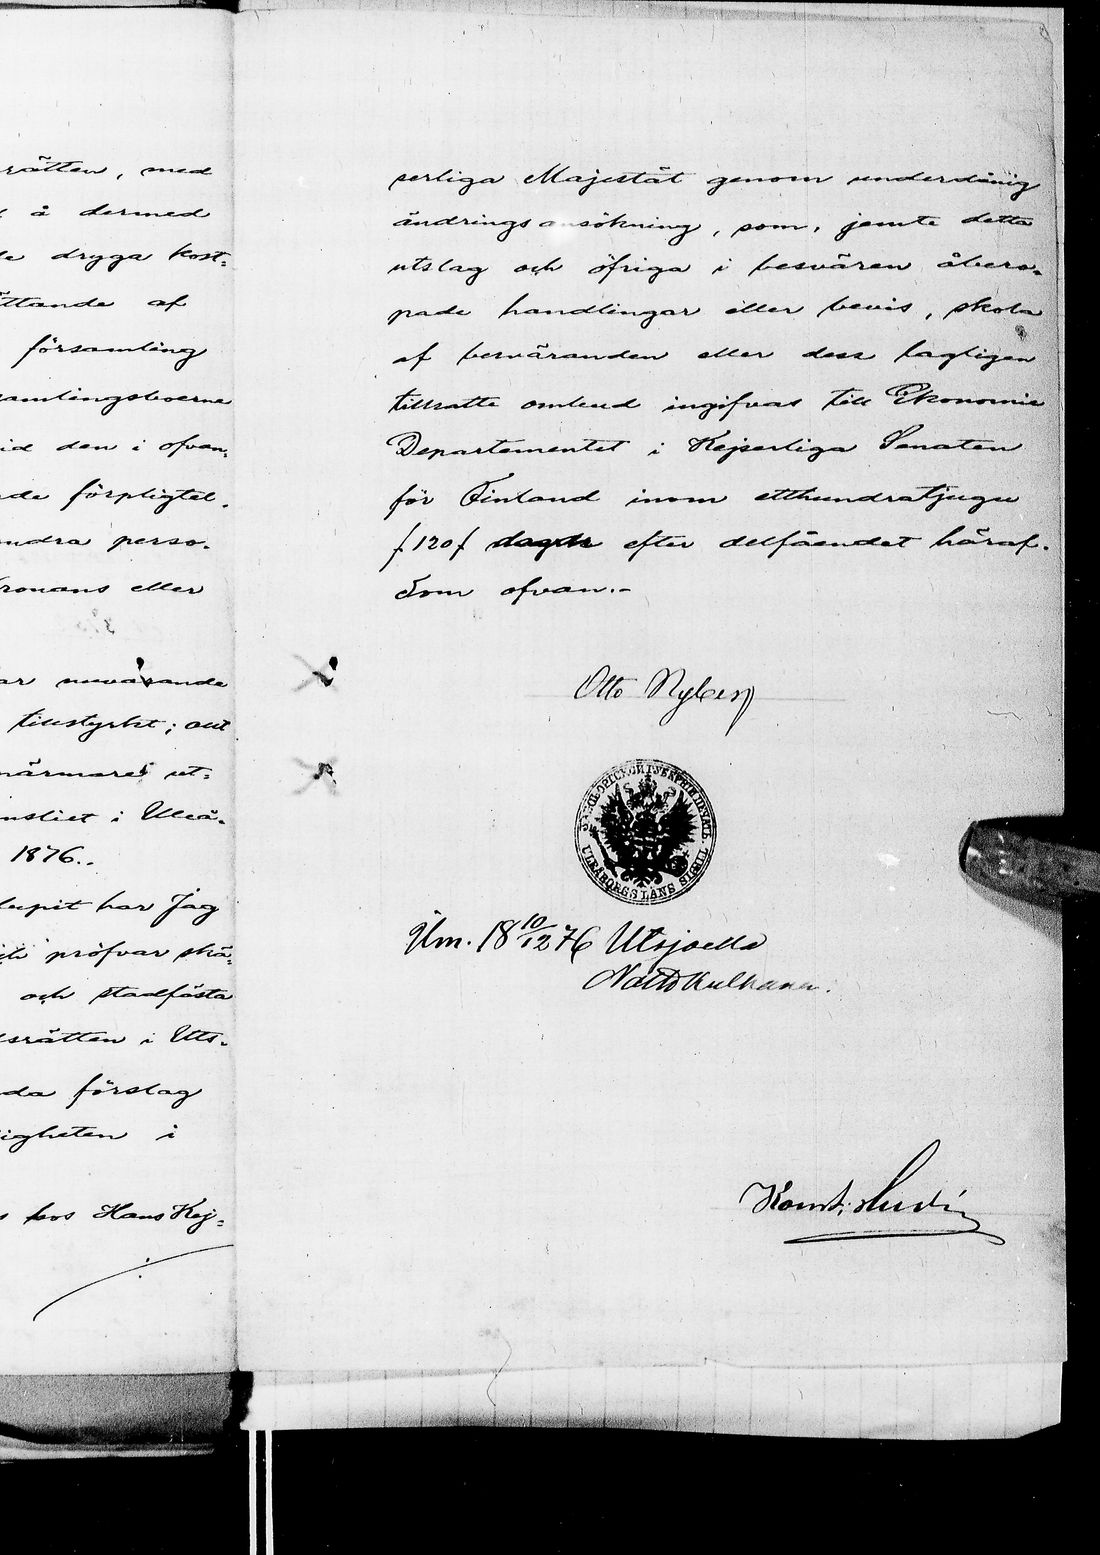 rätten, med
å dermed
dryga kost-
ttande af
församling
samlingsboerne
id den i ofvan-
de förpligtel-
ndra perso-
kronans eller
ar nuvarande
tillstyrkt; allt
närmare ut-
nsliet i Uleå-
1876.
lupit har Jag
pröfvar skä-
och stadfästa
srätten i Uts-
da förslag
igheten i
s hos Hans Kej-
serliga Majestät genom underdånig
ändringsansökning, som, jemte detta
utslag och öfriga i besvären åbero-
pade handlingar eller bevis, skola
af besväranden eller dess lagligen
tillsatte ombud ingifvas till Ekonomie
Departementet i Kejserliga Senaten
för Finland inom etthundratjugu
/120/ dagar efter delfåendet häraf.
Som ofvan.-
Otto Nyberg
УЛЕОБОРГСКОЙ ГУБЕРНІИ ПЕЧАТЬ
ULEÅBORGS LÄNS SIGILL
Um. 18 10/12 76 Utsjoella